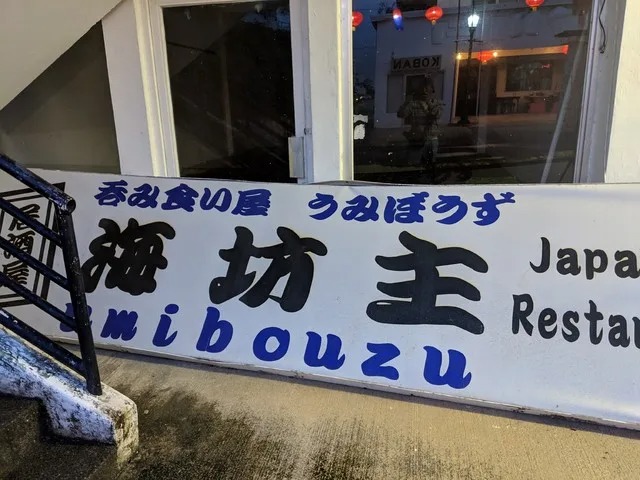 居酒屋
呑み食い屋 うみぼうず
海坊主
umibouzu
Japa
Restau
KOBAN